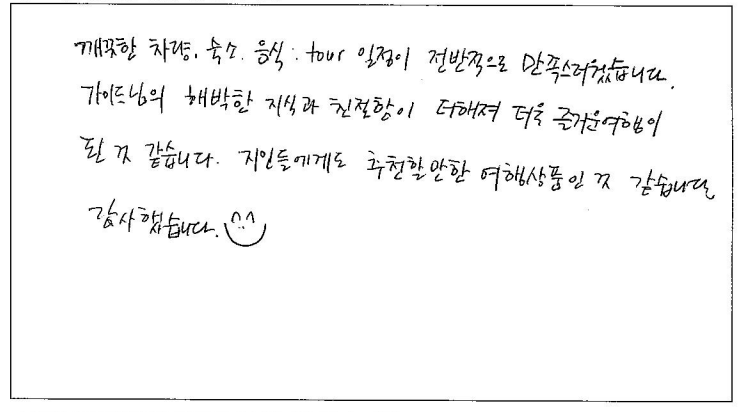 깨끗한 차량, 숙소, 음식, tour 일정이 전반적으로 만족스러웠습니다.
가이드님의 해박한 지식과 친절함이 더해져 더욱 즐거운여행이
된 것 같습니다. 지인들에게도 추천할만한 여행상품인 것 같습니다
감사했습니다. ^^